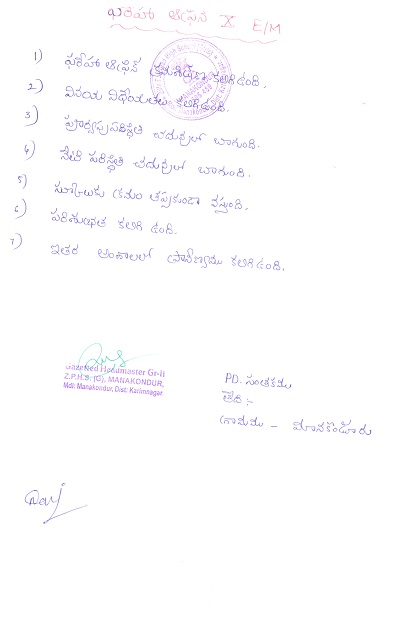 ఫరీహా ఆఫీన X E/M
1) ఫరీహా ఆఫీన్ క్రమశిక్షణ కలిగి ఉంది.
2) వినయ విధేయతలు కలిగి ఉంది.
3) పూర్వపు పరిస్థితి చదువులో బాగుంది.
4) నేటి పరిస్థితి చదువులో బాగుంది.
5) స్కూలుకు క్రమం తప్పకుండా వస్తుంది.
6) పరిశుభ్రత కలిగి ఉంది.
7) ఇతర అంశాలలో ప్రావీణ్యము కలిగి ఉంది.
Gazetted Headmaster Gr-II
Z.P.H.S. (G), MANAKONDUR,
Mdl: Manakondur, Dist: Karimnagar
PD. సంతకము
తేది :-
గ్రామము - మానకొండూరు